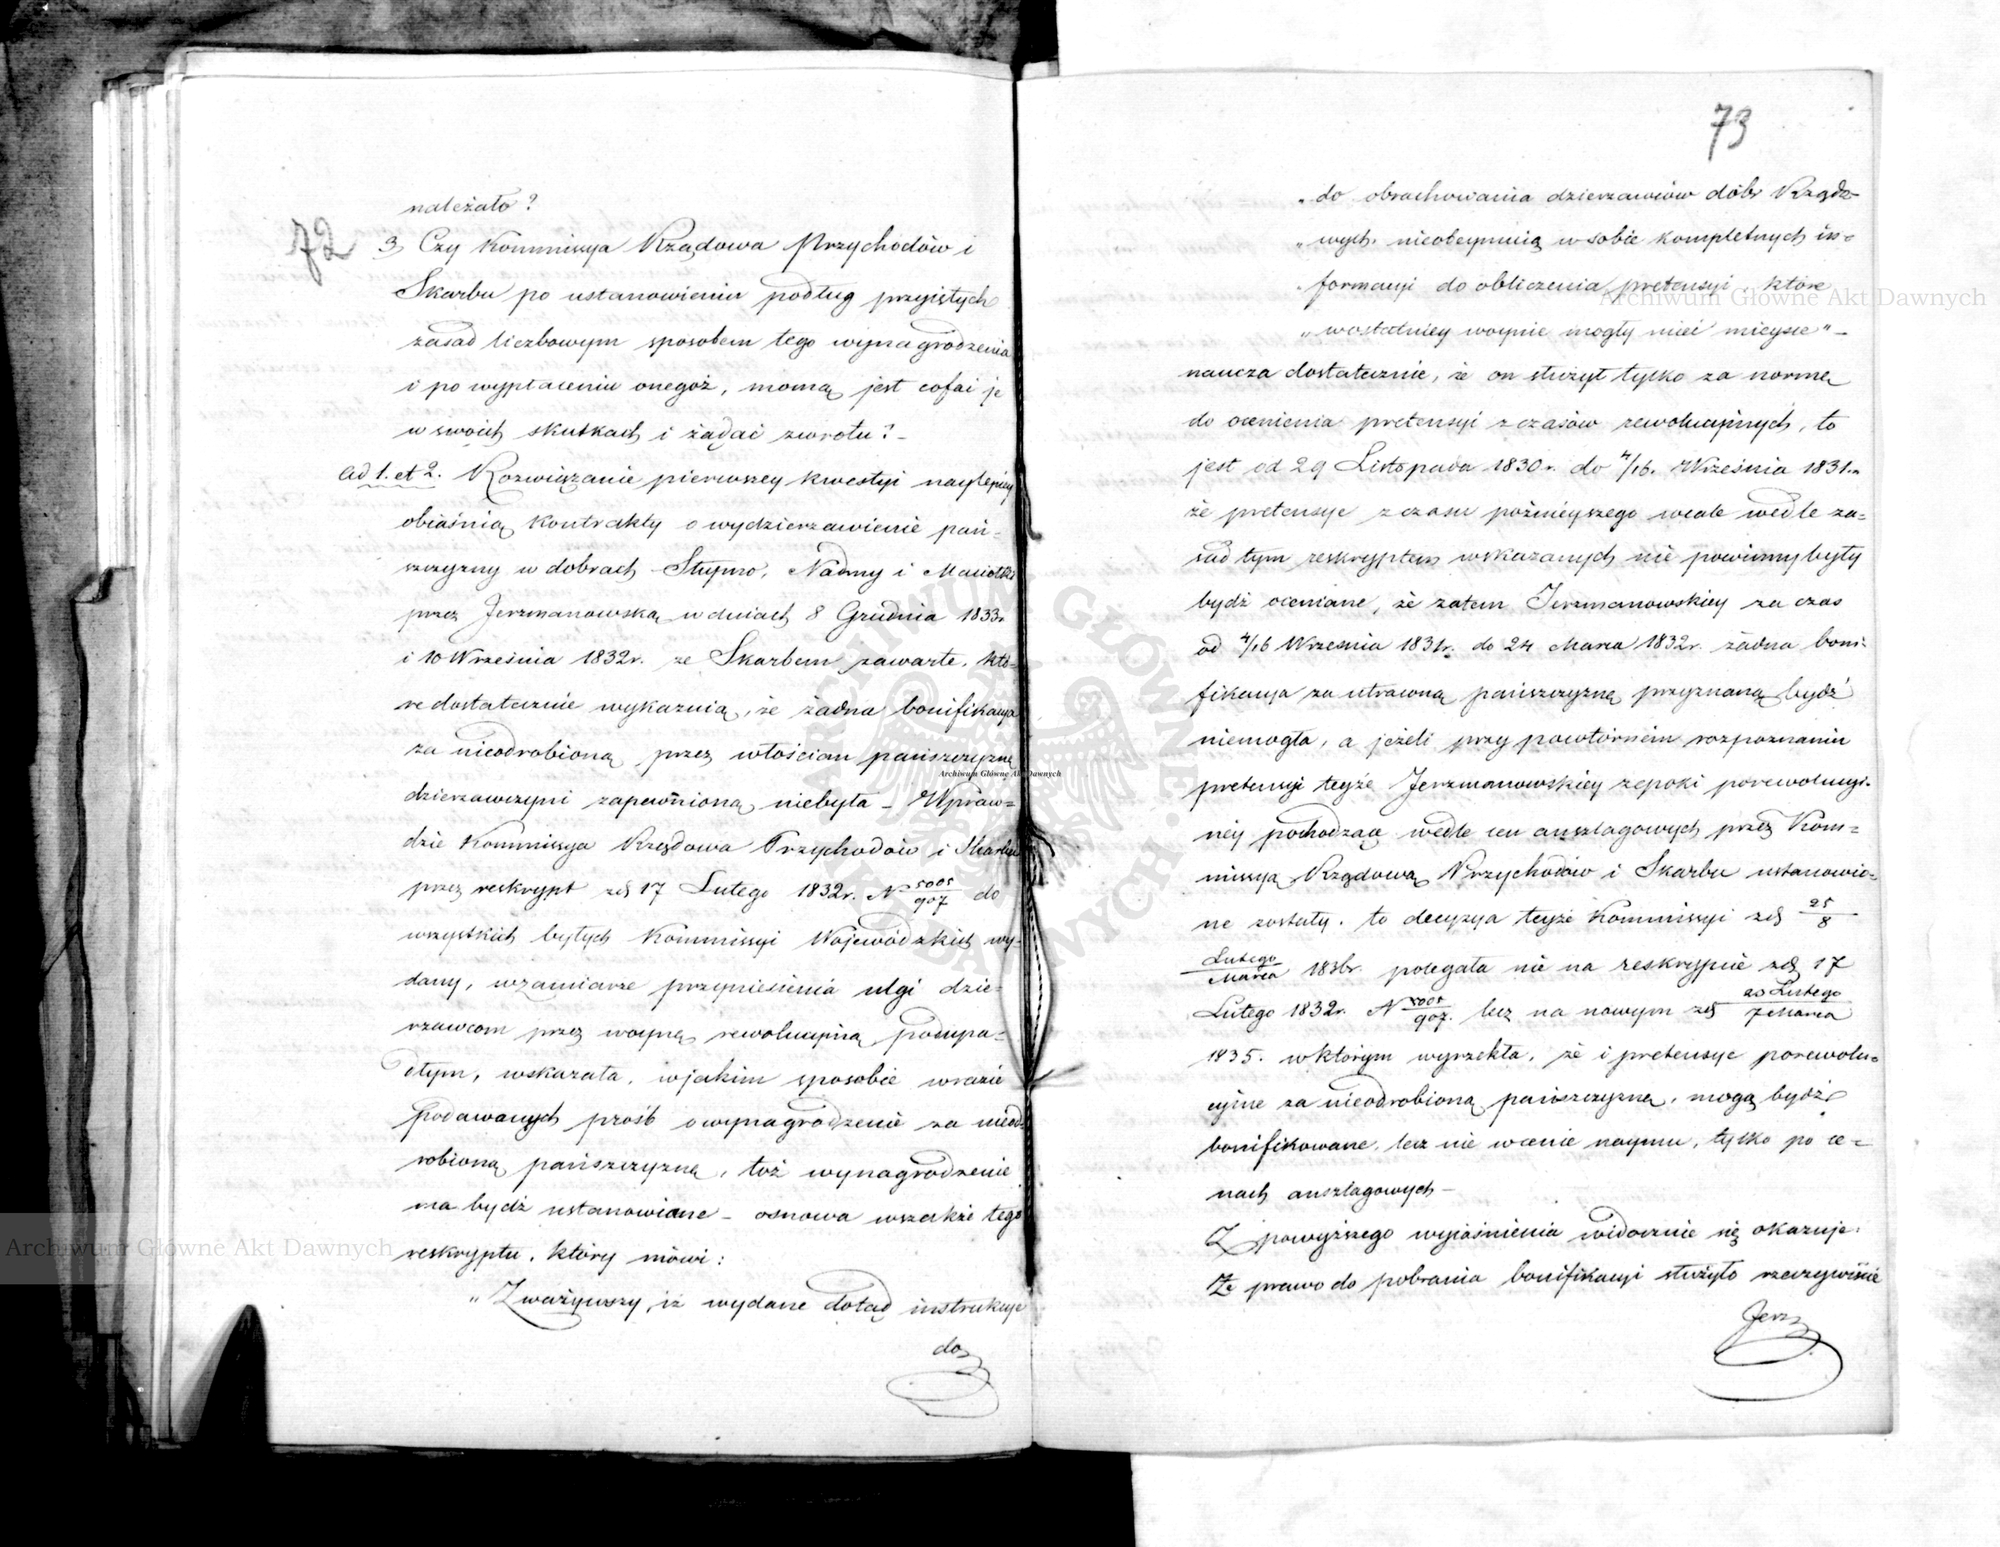 72
należało?
3, Czy Kommissya Rządowa Przychodów i
Skarbu po ustanowieniu podług przyiętych
zasad liczbowym sposobem tego wynagrodzenia
i po wypłaceniu onegoż, mocną jest cofać je
w swoich skutkach i żądać zwrotu? –
ad 1. et 2. Rozwiązanie pierwszey kwestyi naylepiey
obiaśnią kontrakty o wydzierzawienie pań-
szczyzny w dobrach Stupno, Nadmy i
przez Jerzmanowską w dniach 8 Grudnia 1833r
i 10 Września 1832r. ze Skarbem zawarte, któ-
re dostatecznie wykazuią, że żadna bonifikacya
za nieodrobioną przez włościan pańszczyznę
dzierzawczyni zapewnioną niebyła – Wpraw=
dzie Kommissya Rządowa Przychodów i Skarbu
przez reskrypt zdź 17 Lutego 1832r. N 5005/907 do
wszystkich byłych Kommissyi Wojewódzkich wy-
dany, w zamiarze przyniesienia ulgi dzie-
rzawcom przez woynę rewolucyiną podupa-
dłym, wskazała, w jakim sposobie w razie
podawanych prośb o wynagrodzenie za nieod-
robioną pańszczyznę, toż wynagrodzenie
ma bydź ustanowione – osnowa wszakże tego
reskryptu, który mówi:
„Zważywszy, iż wydane dotąd instrukcye
do
73
„do obrachowania dzierzawców dóbr Rządo-
„wych, nieobeymuią w sobie kompletnych in-
„formacyi do obliczenia pretensyi, które
„w ostatniey woynie mogły mieć mieysce" –
naucza dostatecznie, że on służył tylko za normę
do ocenienia pretensyi z czasów rewolucyinych, to
jest od 29 Listopada 1830r. do 4/16. Września 1831r.
że pretensye z czasu poźnieyszego wcale wedle za=
sad tym reskryptem wskazanych nie powinnyby były
bydź oceniane, że zatem Jerzmanowskiey za czas
od 4/16 Września 1831r. do 24 Marca 1832r. żadna boni-
fikacya za utraconą pańszczyznę przyznaną bydź
niemogła, a jeżeli przy powtórnem rozpoznaniu
pretensyi teyże Jerzmanowskiey z epoki porewolucyi-
ney pochodzące wedle cen anszlagowych przez Kom=
missyą Rządową Przychodów i Skarbu ustanowio-
ne zostały, to decyzya teyże Kommissyi zdź 25/8
Lutego/Marca 1836r. polegała nie na reskrypcie zdź 17
Lutego 1832r. N 5005/907. lecz na nowym zdź 23 Lutego/7 Marca
1835. w którym wyrzekła, że i pretensye porewolu-
cyine za nieodrobioną pańszczyznę, mogą bydź
bonifikowane, lecz nie w cenie naymu, tylko po ce-
nach anszlagowych –
Z powyższego wyiaśnienia widocznie się okazuje:
Że prawo do pobrania bonifikacyi służyło rzeczywiście
Jerz
Archiwum Główne Akt Dawnych
Archiwum Główne Akt Dawnych
Archiwum Główne Akt Dawnych
ARCHIWUM GŁÓWNE AKT DAWNYCH